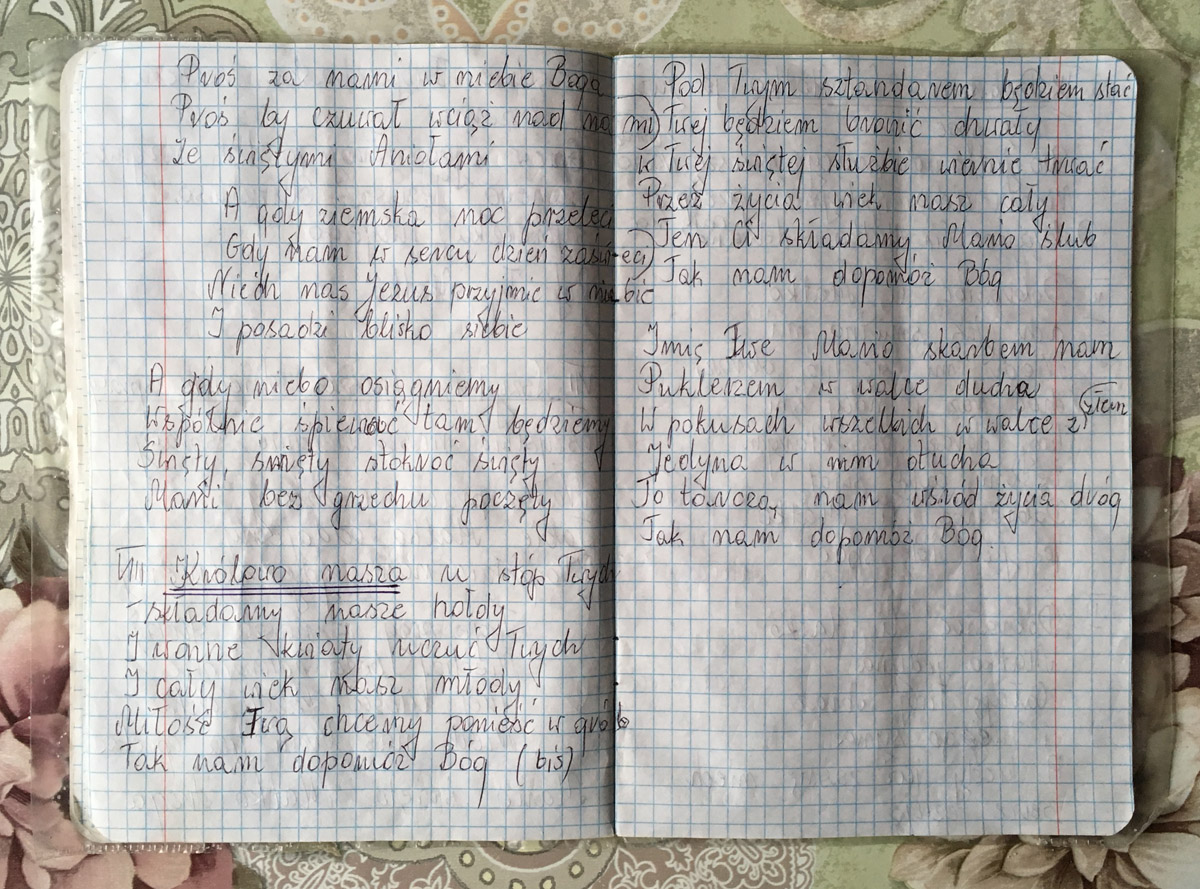 Proś za nami w niebie Boga
Proś by czuwał wciąż nad nami)
Ze świętymi Aniołami
A gdy ziemska noc przeleci
Gdy nam w sercu dzień zaświeci)
Niech nas Jezus przyjmie w niebie
I posadzi blisko siebie
A gdy niebo osiągniemy
Wspólnie śpiewać tam będziemy
Święty, święty stokroć święty
Marii bez grzechu poczęty
VIII Królowo nasza u stóp Twych
składamy nasze hołdy
I wonne kwiaty uczuć Twych
I cały wiek nasz młody
Miłość Twą chcemy ponieść w grób
Tak nam dopomóż Bóg (bis)
Pod Twym sztandarem będziem stać
Twej będziem bronić chwały
w Twej świętej służbie wiernie trwać
Przez życia wiek nasz cały
Ten Ci składamy Mario ślub
Tak nam dopomóż Bóg
Imię Twe Mario skarbem nam
Puklerzem w walce ducha
W pokusach wszelkich w walce z złem
Jedyna w nim otucha
To tarczą nam wśród życia dróg
Tak nam dopomóż Bóg.